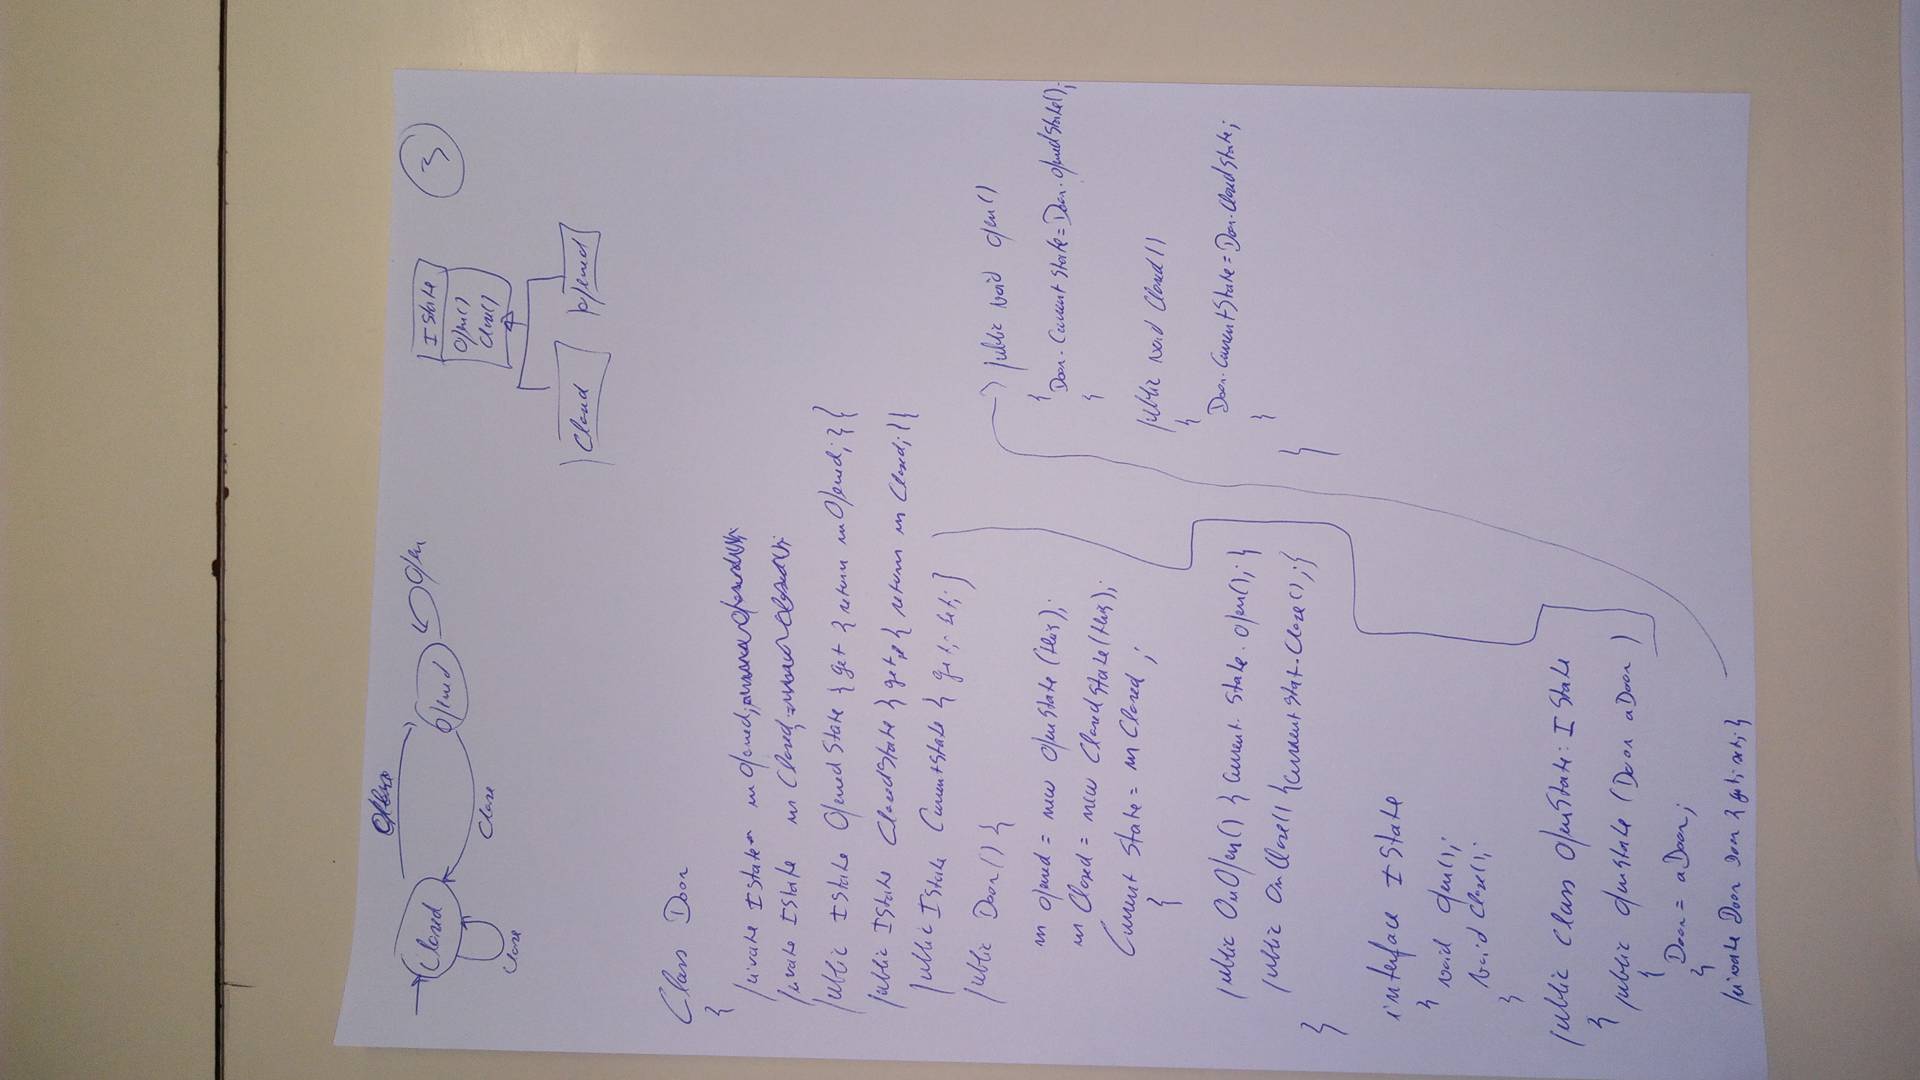 3
Open
Open
Closed
Opened
Close
Close
IState
Open()
Close()
Closed
Opened
Class Door
{
private IState m Opened;
private IState m Closed;
public IState OpenedState { get { return m Opened; } }
public IState ClosedState { get { return m Closed; } }
public IState CurrentState { get; set; }
public Door() {
m Opened = new OpenState(this);
m Closed = new ClosedState(this);
Current State = m Closed ;
}
public OnOpen() { Current State. Open(); }
public OnClose() { Current Stat. Close(); }
}
interface IState
{ void Open();
void Close();
}
public Class OpenState: IState
{ public OpenState (Door aDoor)
{
Door = aDoor;
}
private Door Door { get; set; }
public void Open()
{
Door. Current State = Door. Opened State();
}
public void Closed()
{
Door. Current State = Door. Closed State;
}
}